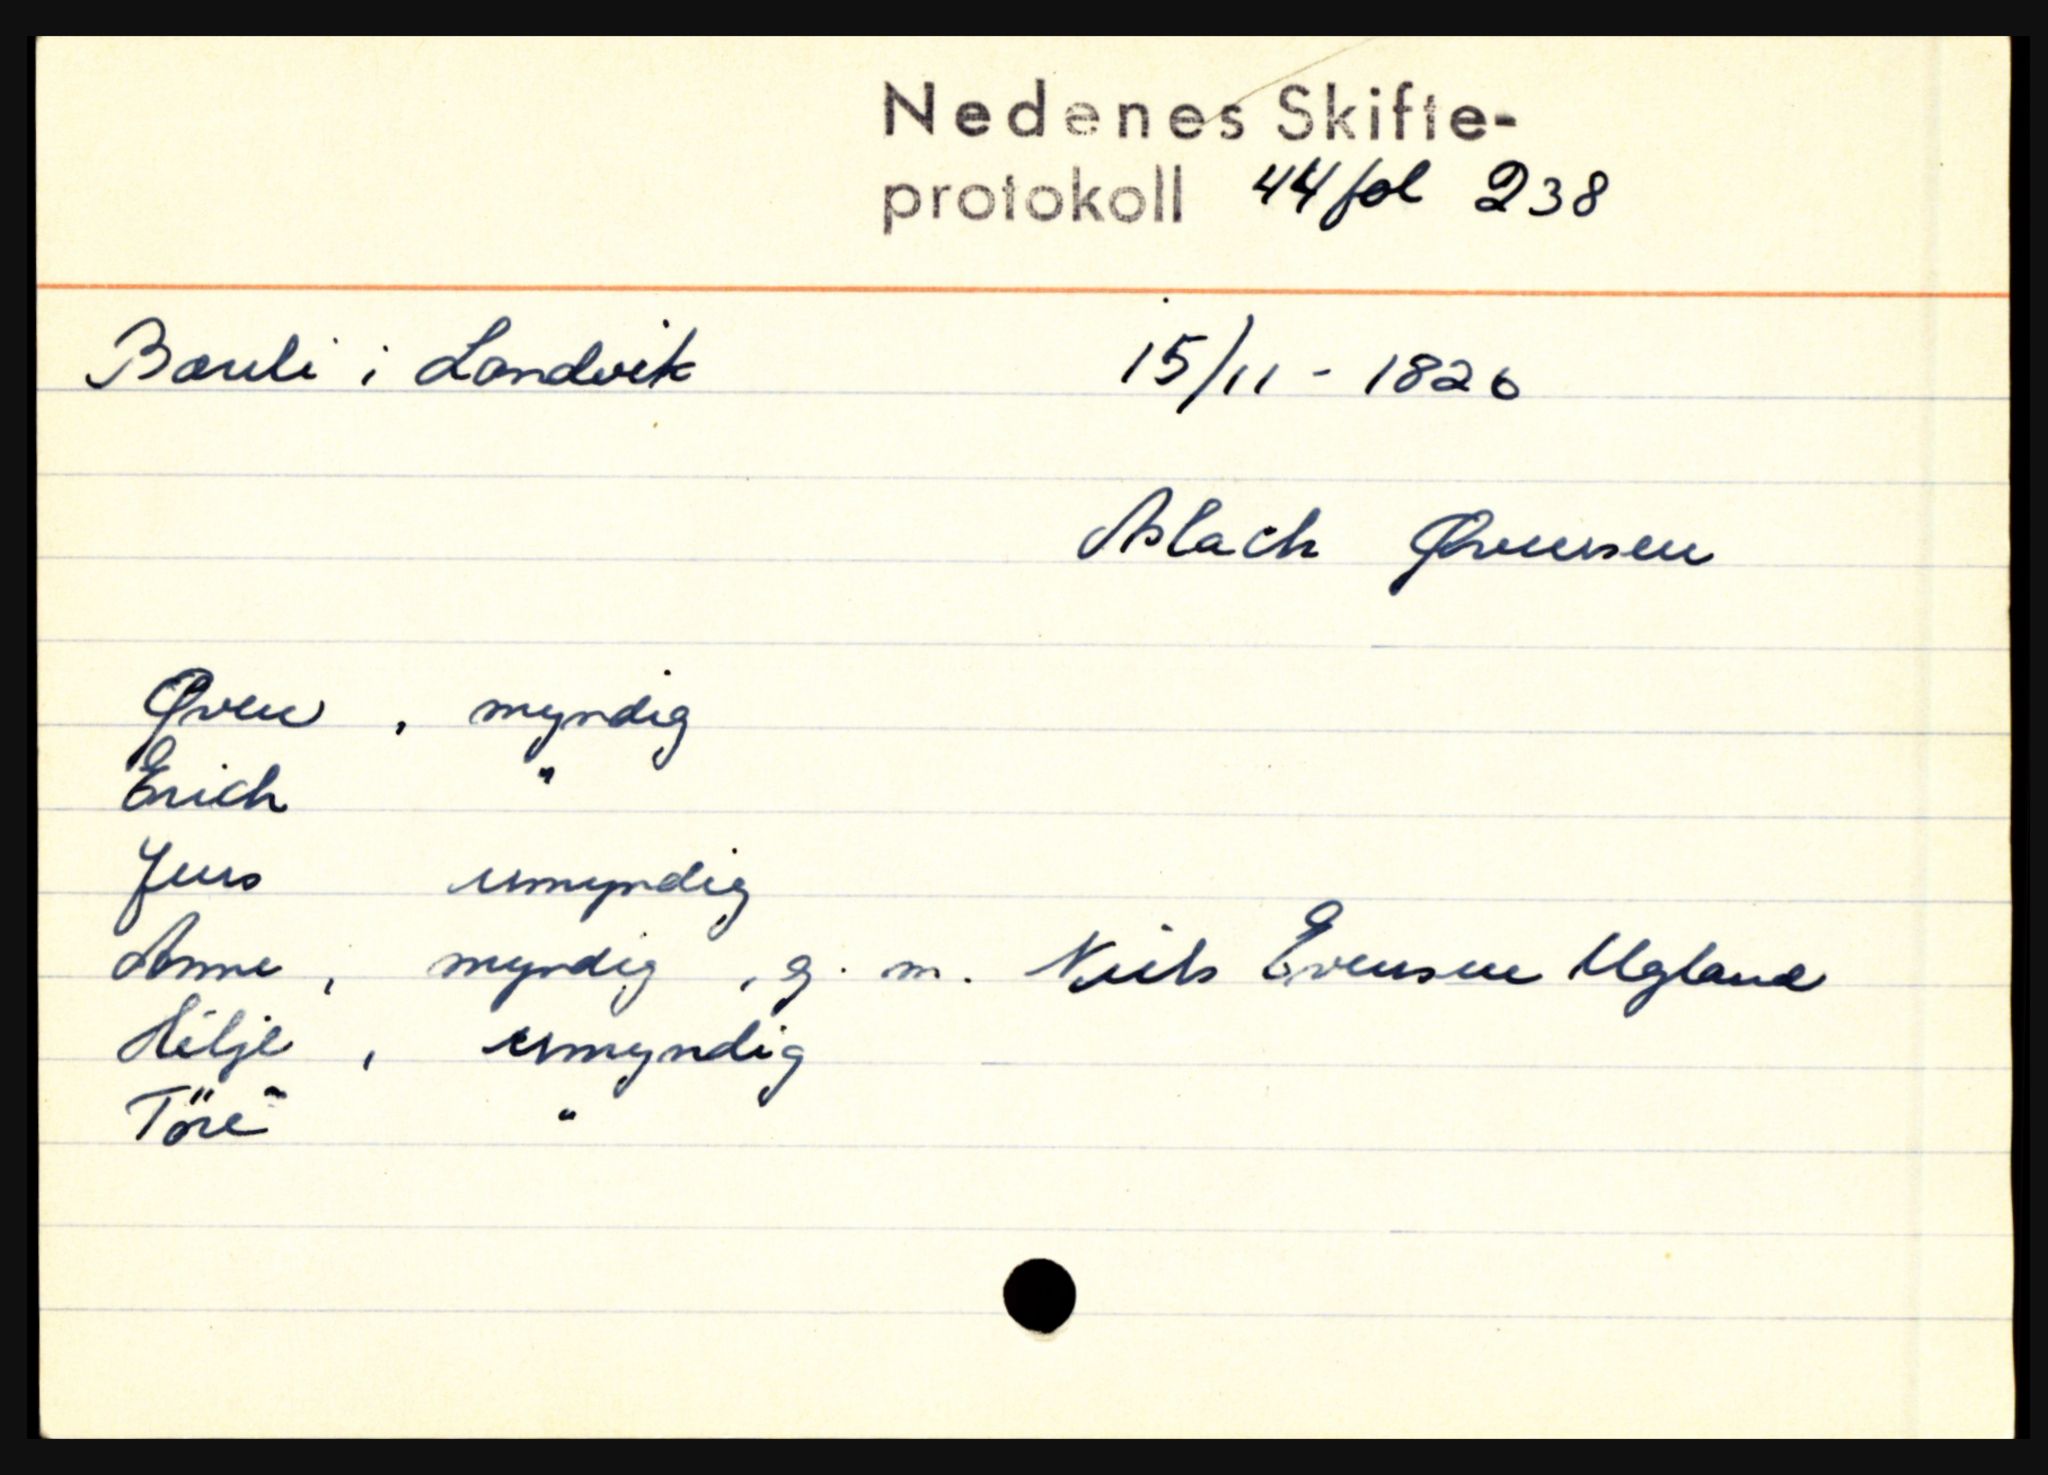 Nedenes Skifte-
protokoll 44 fol 238
Bærli i Landvik 15/11 - 1826
Aslach Øvensen
Øven , myndig
Erich "
Jens umyndig
Anne , myndig , g. m. Niels Evensen Ugland
Hilje , umyndig
Töre "